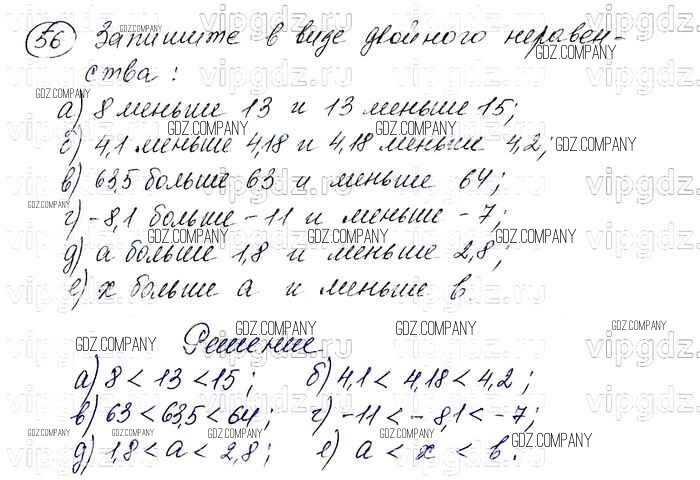 56 Запишите в виде двойного неравен-
ства:
а) 8 меньше 13 и 13 меньше 15;
б) 4,1 меньше 4,18 и 4,18 меньше 4,2;
в) 63,5 больше 63 и меньше 64;
г) -8,1 больше -11 и меньше -7;
д) а больше 1,8 и меньше 2,8;
е) х больше а и меньше в.
Решение
а) 8 < 13 < 15; б) 4,1 < 4,18 < 4,2;
в) 63 < 63,5 < 64; г) -11 < -8,1 < -7;
д) 1,8 < а < 2,8; е) а < х < в.
GDZ.COMPANY
vipgdz.ru